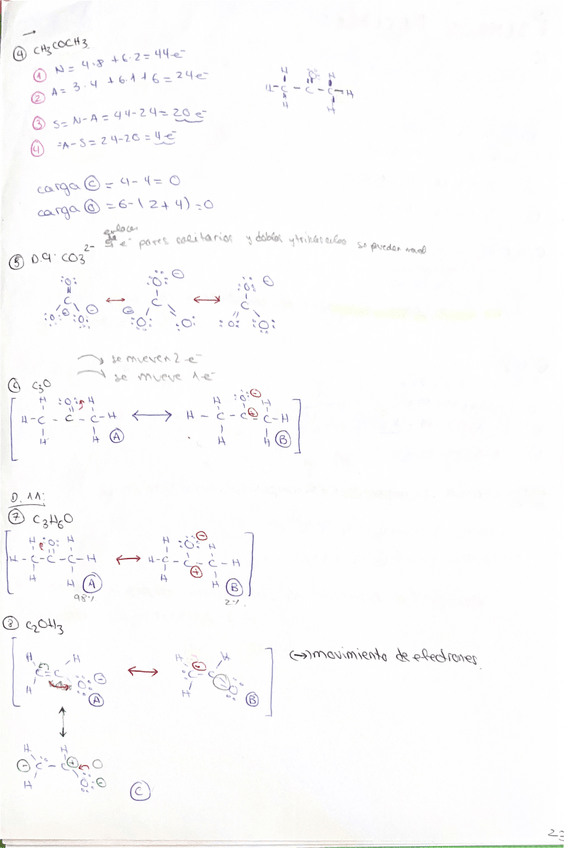 ④ CH₃COCH₃
① N = 4·8 + 6·2 = 44 e⁻
② A = 3·4 + 6·1 + 6 = 24 e⁻
③ S = N-A = 44-24 = 20 e⁻
④ =A-S = 24-20 = 4 e⁻
carga Ⓒ = 4-4 = 0
carga Ⓞ = 6-(2+4) = 0
enlaces
e⁻ pares solitarios y dobles y triples enlaces se pueden mover
⑤ D.9: CO3²⁻
se mueven 2 e⁻
se mueve 1 e⁻
⑥ C3O
H :O: H
H-C-C-C-H
H H
Ⓐ
H :O: ⊖ H
H-C-C⊕-C-H
H H
Ⓑ
D.11:
⑦ C3H6O
H :O: H
H-C-C-C-H
H H
Ⓐ
98%
H :O: ⊖ H
H-C-C-C-H
⊕
H H
Ⓑ
2%
⑧ C2OH3
(↔) movimiento de electrones.
Ⓐ
Ⓑ
Ⓒ
23